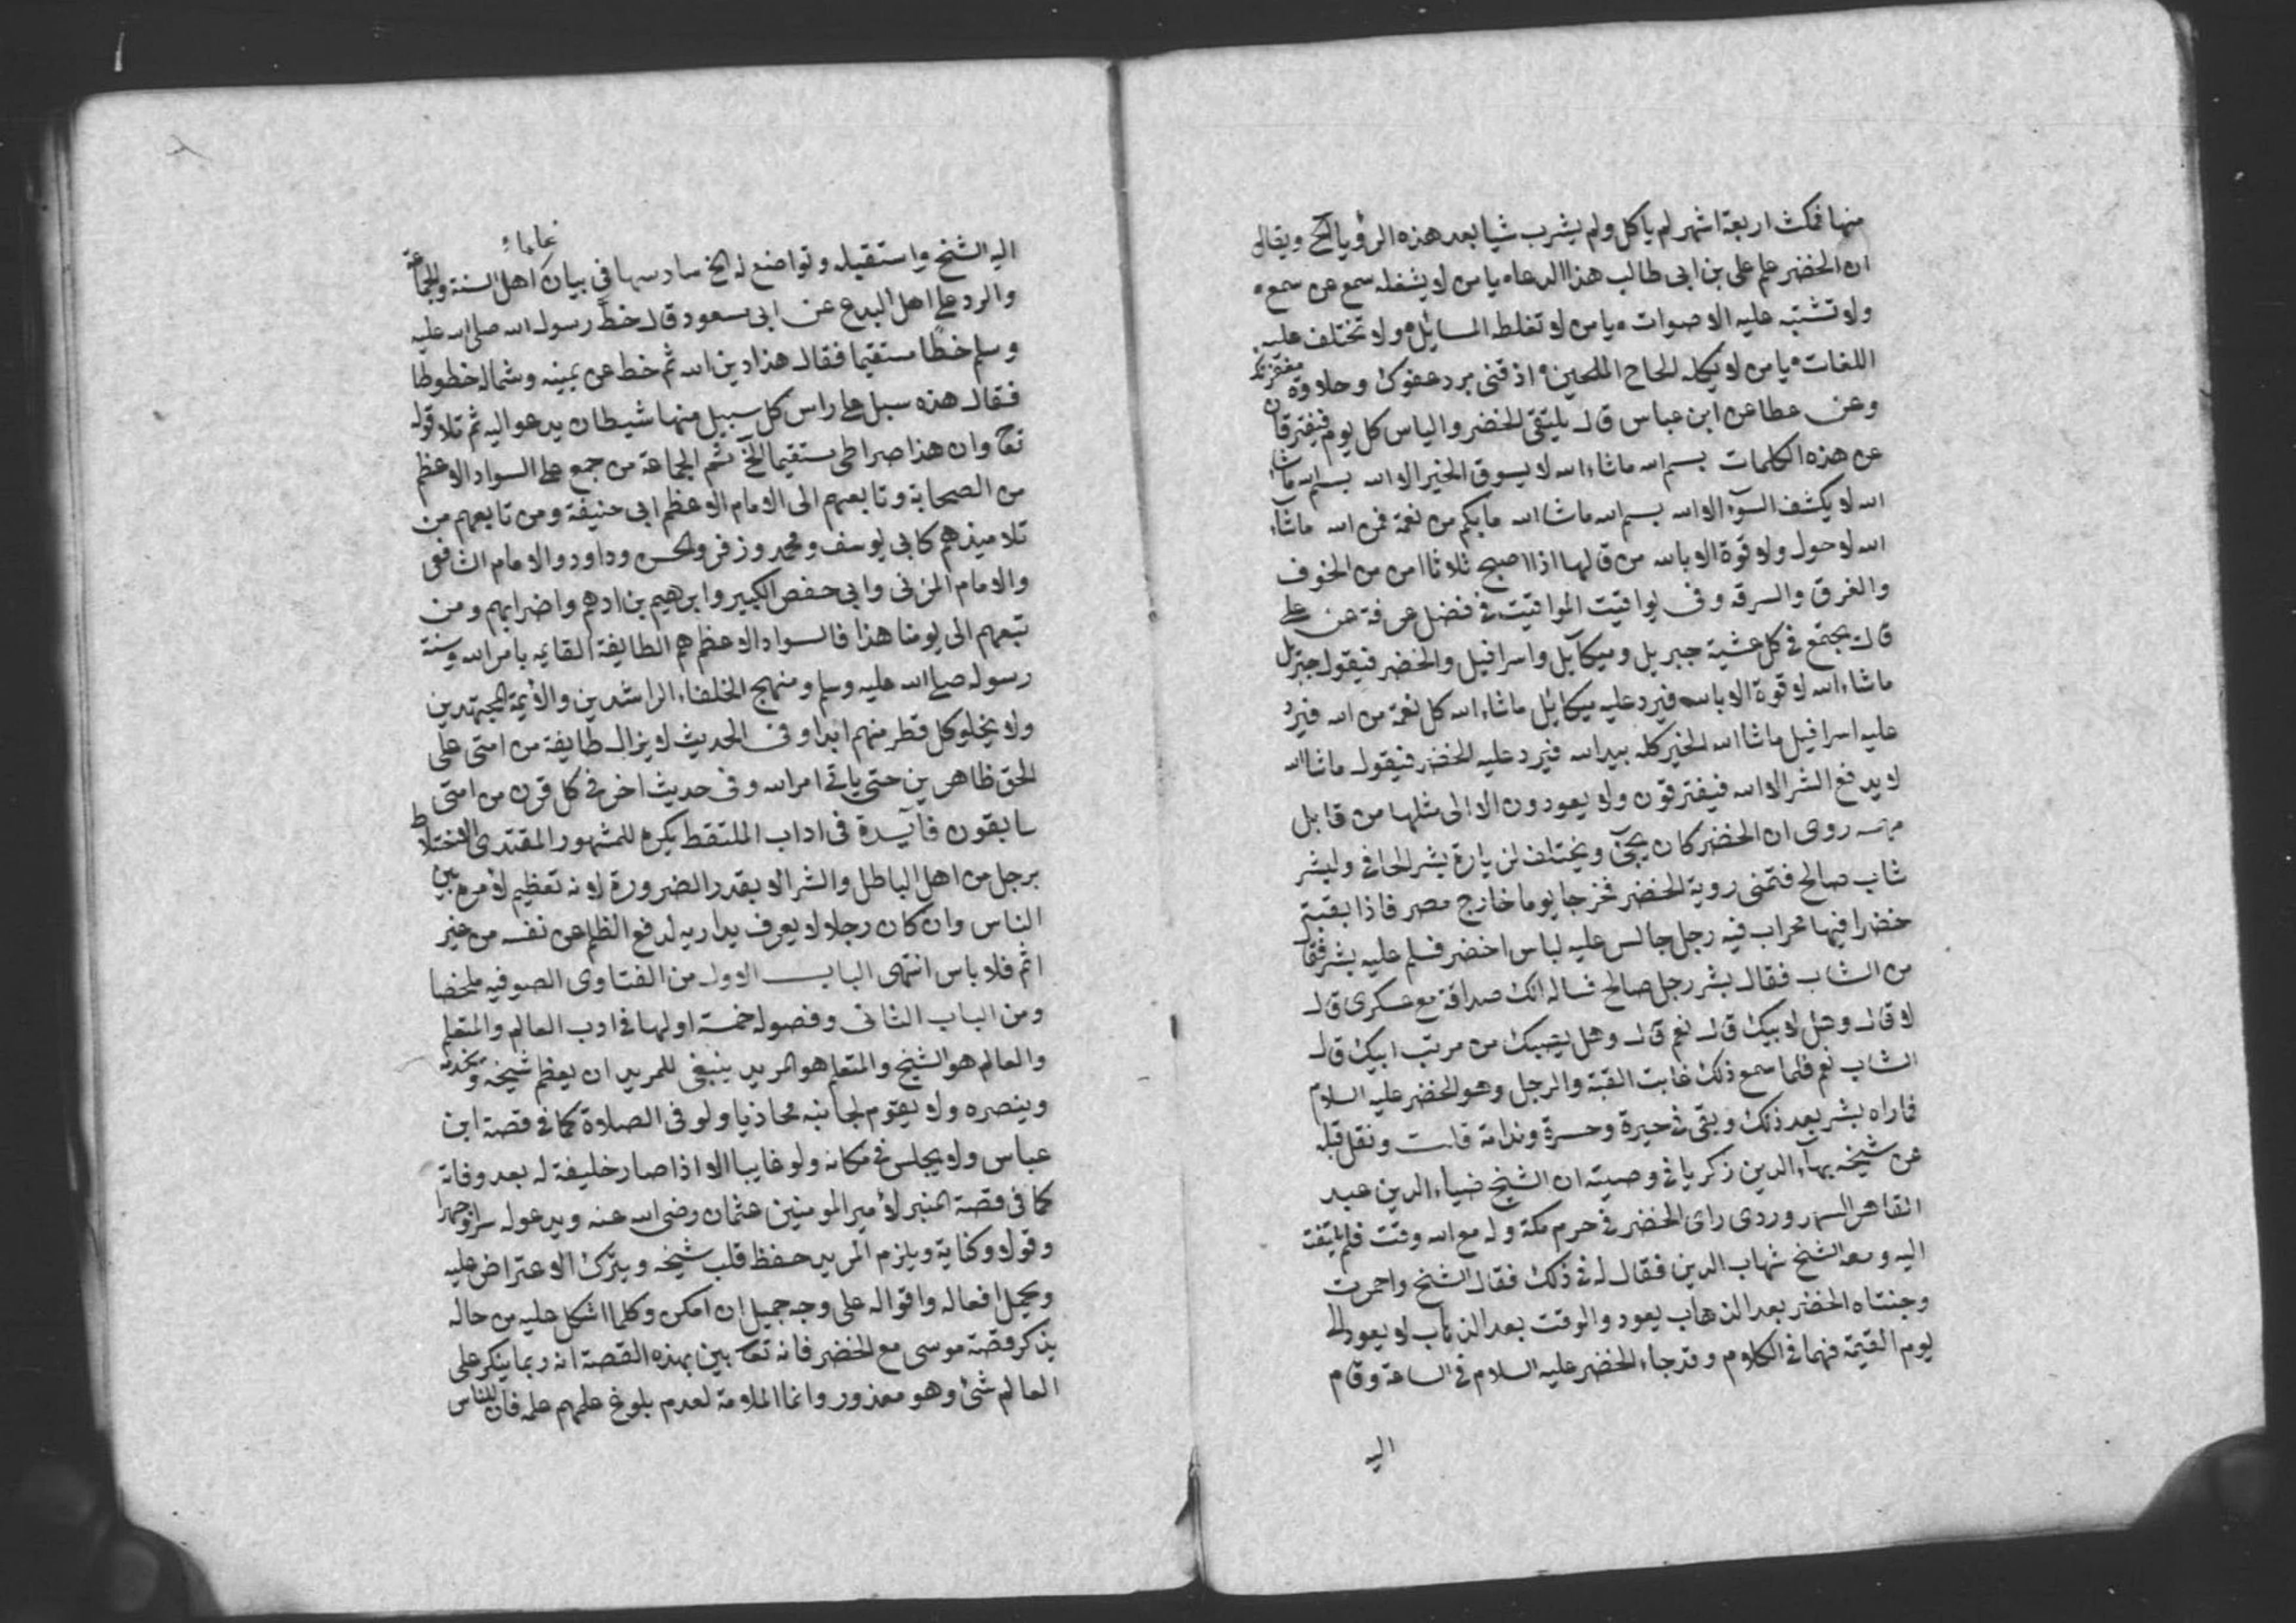 منها فمكث اربعة اشهر لم ياكل ولم يشرب شيا بعد هذه الرؤيا الخ ويقال
ان الخضر علم على بن ابى طالب هذا الدعاء يا من لا يشغله سمع عن سمع
ولا تشتبه عليه الاصوات يا من لا تغلطه المسايل ولا تختلف عليه
اللغات يا من لا يمله الحاح الملحين اذقنى برد عفوك وحلاوة مغفرتك
وعن عطا عن ابن عباس قال يلتقى الخضر والياس كل يوم فيفترقان
عن هذه الكلمات بسم الله ماشاء الله لا يسوق الخير الا الله بسم الله ماشا
الله لا يكشف السوء الا الله بسم الله ماشا الله ما بكم من نعمة فمن الله ماشاء
الله لا حول ولا قوة الا بالله من قالها اذا اصبح ثلاثا امن من الخوف
والغرق والسرقه وفى يواقيت المواقيت فى فضل عرفة عن على
قال يجتمع فى كل عشية جبريل وميكآيل واسرافيل والخضر فيقول جبريل
ماشاء الله لا قوة الا بالله فيرد عليه ميكايل ماشاء الله كل نعمة من الله فيرد
عليه اسرافيل ماشا الله الخير كله بيد الله فيرد عليه الخضر فيقول ماشا الله
لا يدفع الشر الا الله فيفترقون ولا يعودون الا الى مثلها من قابل
روى ان الخضر كان يجئ ويختلف لزيارة بشر الحافى ولبشر
شاب صالح فتمنى روية الخضر فخرجا يوما خارج مصر فاذا بقبة
خضرا فيها محراب فيه رجل جالس عليه لباس اخضر فسلم عليه بشر فقال
من الشاب فقال بشر رجل صالح فساله الك صداقة مع عسكرى قال
لا قال وهل لابيك قال نعم قال وهل يصيبك من مرتب ابيك قال
الشاب نعم فلما سمع ذلك غابت القبة والرجل وهو الخضر عليه السلام
فاراه بشر بعد ذلك وبقى فى حيرة وحسرة وندامة قلت ونقل قبله
عن شيخه بهاء الدين زكريا فى وصيته ان الشيخ ضياء الدين عبد
القاهر السهروردى راى الخضر فى حرم مكة وله مع الله وقت فلم يلتفت
اليه ومعه الشيخ شهاب الدين فقال له فى ذلك فقال الشيخ واحمرت
وجنتاه الخضر بعد الذهاب يعود والوقت بعد الذهاب لا يعود الى
يوم القيمة فهما فى الكلام وقد جاء الخضر عليه السلام فى الساعة وقام
اليه
اليه الشيخ واستقبله وتواضع له الخ سادسها فى بيان اهل السنة والجماعة
والرد على اهل البدع عن ابى مسعود قال خط رسول الله صلى الله عليه
وسلم خطا مستقيما فقال هذا دين الله ثم خط عن يمينه وشماله خطوطا
فقال هذه سبل على راس كل سبيل منها شيطان يدعو اليه ثم تلا قوله
تعا وان هذا صراطى مستقيما الخ ثم الجماعة من جمع على السواد الاعظم
من الصحابة وتابعهم الى الامام الاعظم ابى حنيفة ومن تابعهم من
تلاميذهم كابى يوسف ومحمد وزفر والحسن وداود والامام الشافعى
والامام المزنى وابى حفص الكبير وابرهيم بن ادهم واضرابهم ومن
تبعهم الى يومنا هذا فالسواد الاعظم هم الطايفة القايمه بامر الله وسنة
رسوله صلى الله عليه وسلم ومنهج الخلفاء الراشدين والأيمة المجتهدين
ولا يخلو كل قطر منهم ابدا وفى الحديث لا يزال طايفة من امتى على
الحق ظاهرين حتى ياتى امر الله وفى حديث اخر فى كل قرن من امتى
سابقون فآيدة فى اداب الملتقط يكره للمشهور المقتدى الاختلاط
برجل من اهل الباطل والشر الا بقدر الضرورة لانه تعظيم لأمره بين
الناس وان كان رجلا لا يعرف يداريه لدفع الظلم عن نفسه من غير
اثم فلا باس انتهى الباب الاول من الفتاوى الصوفيه ملخصا
ومن الباب الثانى وفصوله خمسة اولها فى ادب العالم والمتعلم
والعالم هو الشيخ والمتعلم هو المريد ينبغى للمريد ان يعظم شيخه ويخدمه
وينصره ولا يقوم لجانبه محاذيا ولو فى الصلاة كما فى قصة ابن
عباس ولا يجلس فى مكانه ولو غايبا الا اذا صار خليفة له بعد وفاته
كما فى قصة المنبر لأمير المومنين عثمان رضى الله عنه ويدعو له سرا وجهرا
وقولا وكناية ويلزم المريد حفظ قلب شيخه ويترك الاعتراض عليه
ويحمل افعاله واقواله على وجه جميل ان امكن وكلما اشكل عليه من حاله
يذكر قصة موسى مع الخضر فانه تعا بين بهذه القصة انه ربما ينكر على
العالم شئ وهو معذور وانما الملامة لعدم بلوغ علمهم علمه فان للناس